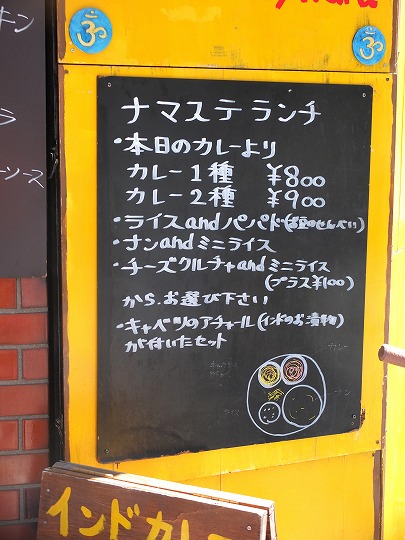 キン
ラ
ーソース
ナマステランチ
・本日のカレーより
カレー1種 ¥800
カレー2種 ¥900
・ライスandパパド(お豆のせんべい)
・ナンandミニライス
・チーズクルチャandミニライス
(プラス¥100)
から、お選び下さい
・キャベツのアチャール(インドのお漬物)
が付いたセット
カレー
ナン
ライス
インドカレー